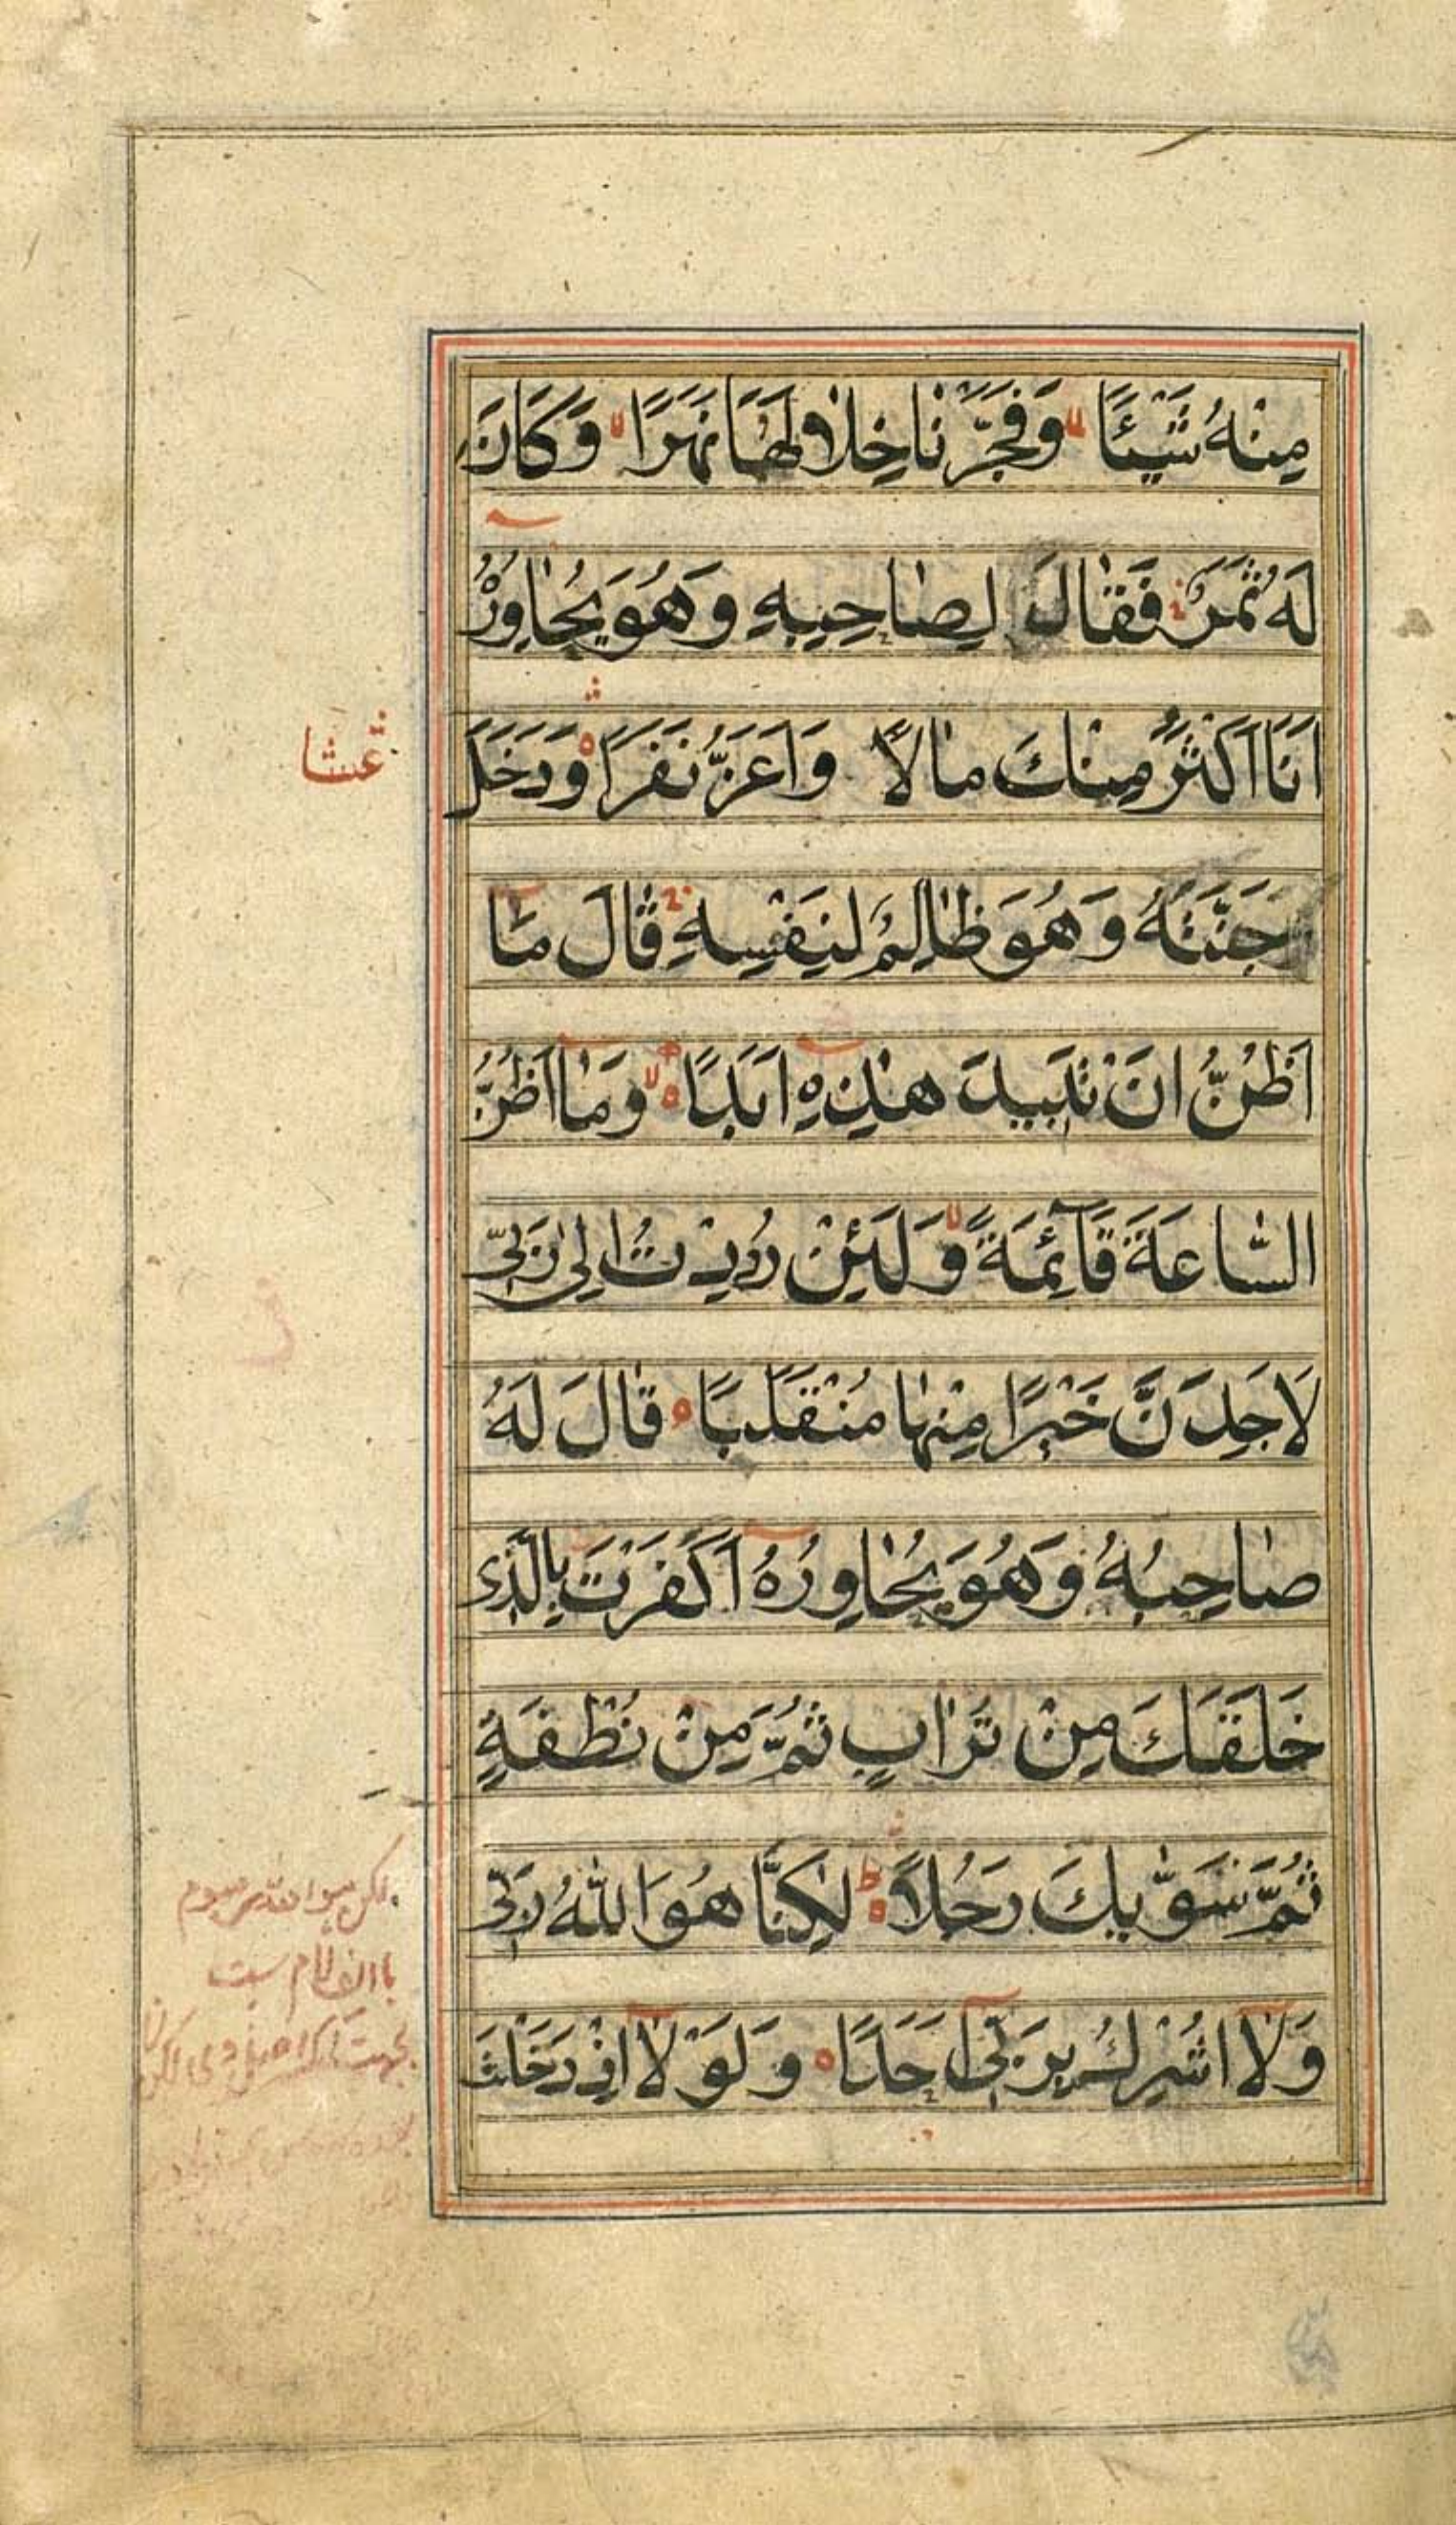 مِنْهُ شَيْئًا وَفَجَّرْنَا خِلَالَهُمَا نَهَرًا وَكَانَ
لَهُ ثَمَرٌ فَقَالَ لِصَاحِبِهِ وَهُوَ يُحَاوِرُهُ
اَنَا اَكْثَرُ مِنْكَ مَالًا وَاَعَزُّ نَفَرًا وَدَخَلَ
جَنَّتَهُ وَهُوَ ظَالِمٌ لِنَفْسِهِ قَالَ مَا
اَظُنُّ اَنْ تَبِيدَ هٰذِهِ اَبَدًا وَمَا اَظُنُّ
السَّاعَةَ قَآئِمَةً وَلَئِنْ رُدِدْتُ اِلٰى رَبِّى
لَاَجِدَنَّ خَيْرًا مِنْهَا مُنْقَلَبًا قَالَ لَهُ
صَاحِبُهُ وَهُوَ يُحَاوِرُهُ اَكَفَرْتَ بِالَّذِى
خَلَقَكَ مِنْ تُرَابٍ ثُمَّ مِنْ نُطْفَةٍ
ثُمَّ سَوّٰيكَ رَجُلًا لٰكِنَّا هُوَ اللّٰهُ رَبِّى
وَلَا اُشْرِكُ بِرَبِّى اَحَدًا وَلَوْلَا اِذْ دَخَلْتَ